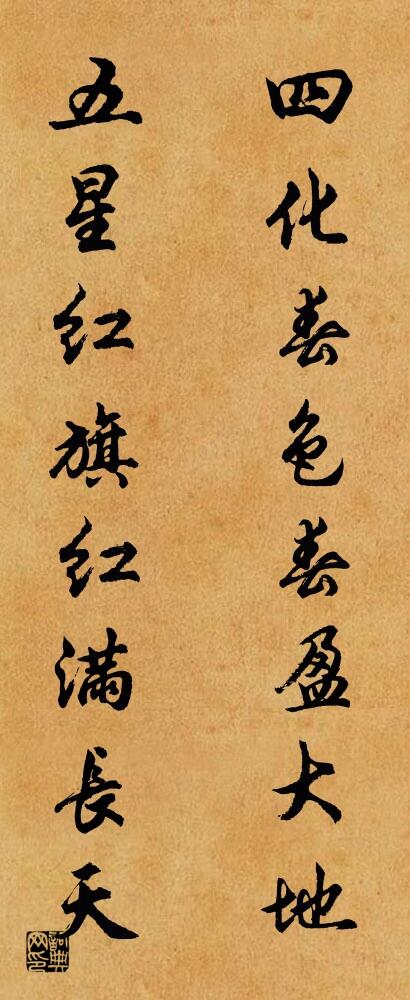 四化春色春盈大地
五星红旗红满長天